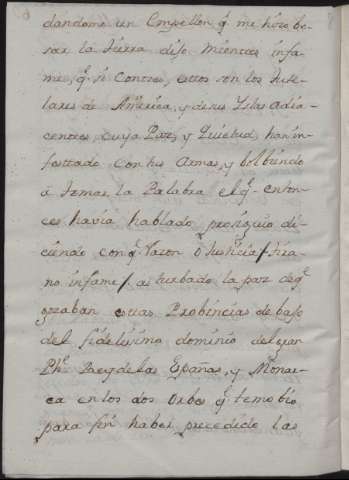 dandome un Empellon, q̃ me hizo be-
sar la tierra dijo mientes infa-
me, q̃ si Contres, estos son los tute-
lares de America, y de sus Yslas adia-
centes, cuya Paz, y Quietud, han in-
festado con sus Armas, y bolbiendo
á tomar la Palabra el q̃ enton-
ces havia hablado prosiguio di-
ciendo con q̃ razon ó Justicia / tira-
no infame / as turbado la paz de q̃
gozaban estas Probincias de bajo
del fidelissimo dominio del gran
Phe. Rey de las Españas, y Monar-
ca en los dos Orbes q̃ te mobio
para sin haber precedido las